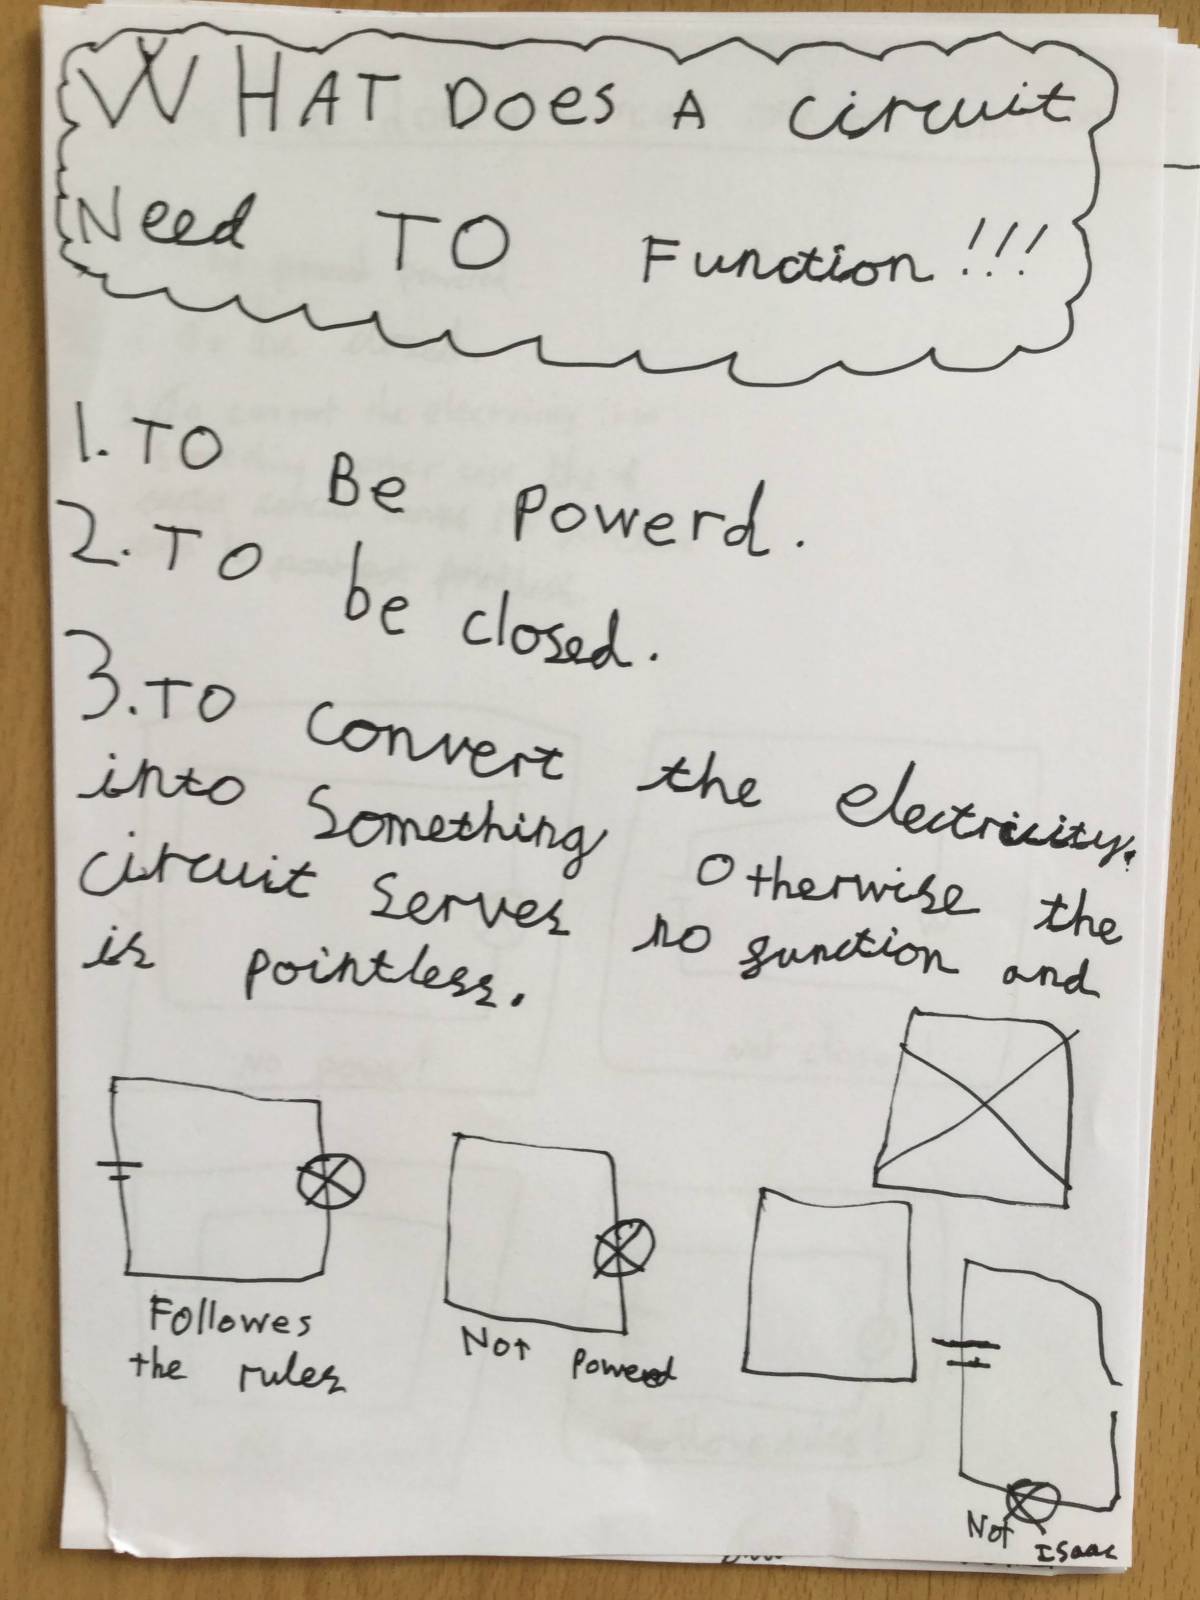 WHAT DOES A circuit
Need TO Function!!!
1. TO Be Powerd.
2. TO be closed.
3. TO convert the electricity.
into Something Otherwise the
circuit Serves no function and
is pointless.
Followes
the rules
Not Powered
Not
Isaac